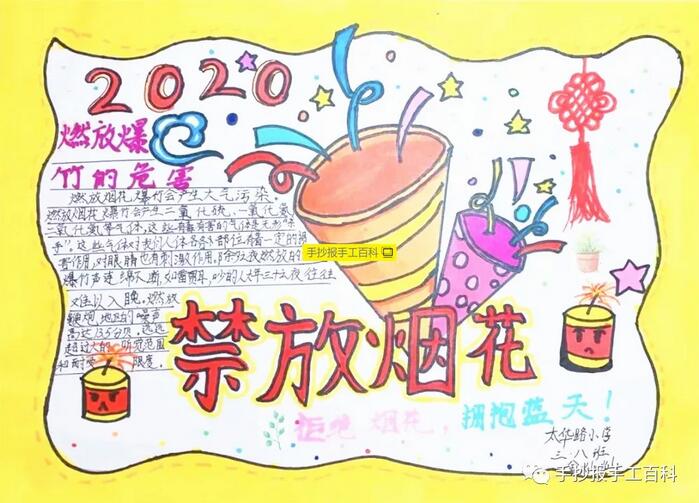 2020
燃放爆
竹的危害
燃放烟花爆竹会产生大气污染。
燃放烟花爆竹会产生二氧化硫、一氧化氮
二氧化氮等气体,这些有毒有害的气体是无形“杀
手”,这些气体对我们人体各个部位有着一定的损
害作用,对眼睛也有刺激作用,除夕夜燃放的
爆竹声连绵不断,如雷贯耳,吵的人大年三十夜往往
难以入眠。燃放
鞭炮 地区的噪声
高达135分贝,远远
超过大的 听觉范围
和耐受 限度。
手抄报手工百科
禁放烟花
拒绝 烟花,拥抱蓝天!
太华路小学
三.八班
手抄报手工百科